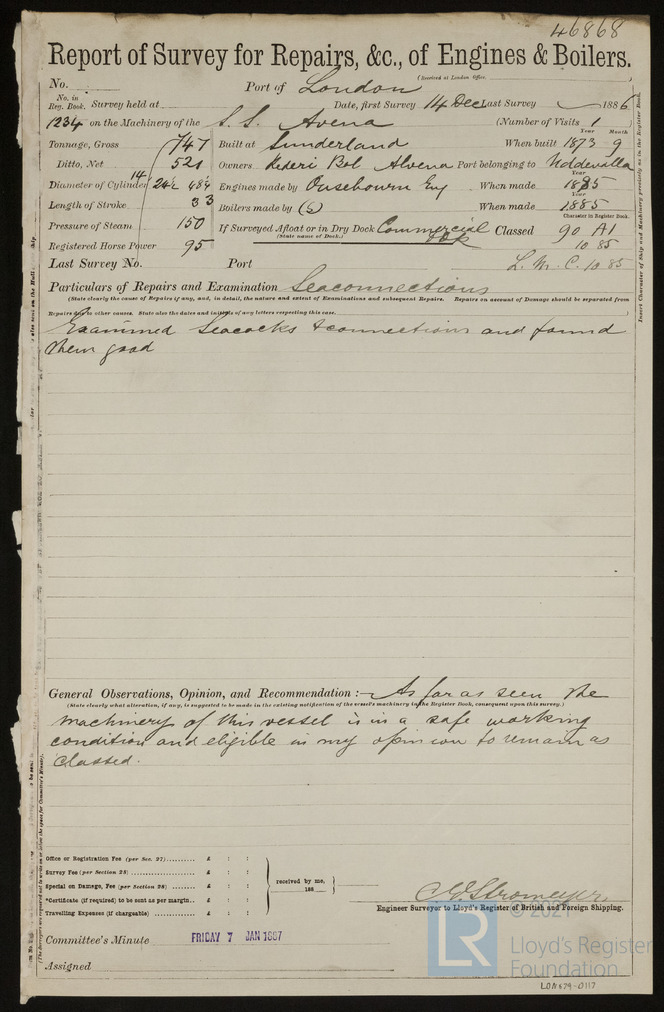 46868
Report of Survey for Repairs, &c., of Engines & Boilers.
(Received at London Office,
No. Port of London
No. in Reg. Book. Survey held at Date, first Survey 14 Dec Last Survey 1886
1234 on the Machinery of the S. S. Avena (Number of Visits 1
Year Month
Tonnage, Gross 747 Built at Sunderland When built 1873 9
Ditto, Net 521 Owners Rederi Bol Avena Port belonging to Uddevalla
Diameter of Cylinder 14 24½ 68¼ Engines made by Ousebourn Eng When made 1885
Length of Stroke 33 Boilers made by (S) When made 1885
Pressure of Steam 150 If Surveyed Afloat or in Dry Dock Commercial Dok Classed 90 A1
(State name of Dock.)
Character in Register Book.
10 85
Registered Horse Power 95
Last Survey No. Port L. M. C. 10 85
Particulars of Repairs and Examination Seaconnections
(State clearly the cause of Repairs if any, and, in detail, the nature and extent of Examinations and subsequent Repairs. Repairs on account of Damage should be separated from
Repairs due to other causes. State also the dates and initials of any letters respecting this case.)
Examined Seacocks & connections and found
them good
General Observations, Opinion, and Recommendation :— As far as seen the
(State clearly what alteration, if any, is suggested to be made in the existing notification of the vessel's machinery in the Register Book, consequent upon this survey.)
machinery of this vessel is in a safe working
condition and eligible in my opinion to remain as
classed.
Office or Registration Fee (per Sec. 27) £ : :
Survey Fee (per Section 28) £ : :
Special on Damage, Fee (per Section 28) £ : :
*Certificate (if required) to be sent as per margin £ : :
Travelling Expenses (if chargeable) £ : :
received by me,
188
C. E. Stromeyer
Engineer Surveyor to Lloyd's Register of British and Foreign Shipping.
Committee's Minute FRIDAY 7 JAN 1887
Assigned
© 2021
LR
Lloyd's Register
Foundation
LON 879-0117
Insert Character of Ship and Machinery precisely as in the Register Book.